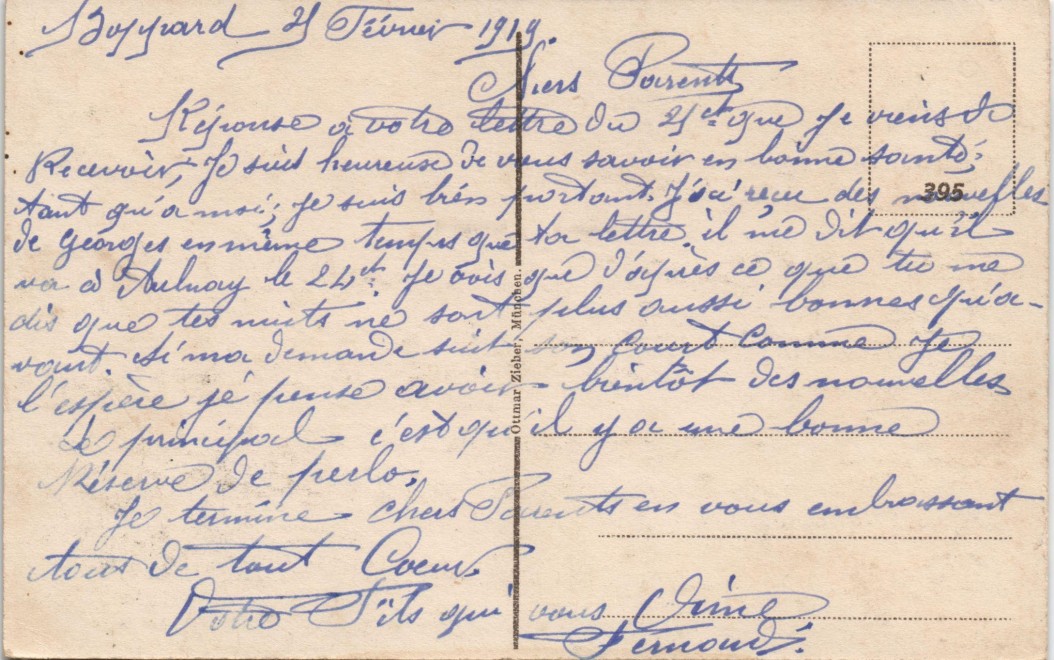 Boppard 21 Février 1919.
Chers Parents
Réponse a votre lettre du 21ct que Je viens de
Recevoir, Je suis heureuse de vous savoir en bonne santé,
tant qu'a moi, Je suis bien portant. J'ai recu des nouvelles
de Georges en même temps que ta lettre. il me dit qu'il
va à Aulnay le 24ct. Je vois que d'après ce que tu me
dis que tes nuits ne sont plus aussi bonnes qu'a-
vant. Si ma demande suit son court comme Je
l'espère je pense avoir bientôt des nouvelles
Le principal c'est qu'il y a une bonne
Réserve de perlo.
Je termine chers Parents en vous embrassant
tous de tout Coeur.
Votre Fils qui vous Aime
Fernand.
395
Ottmar Zieher, München.